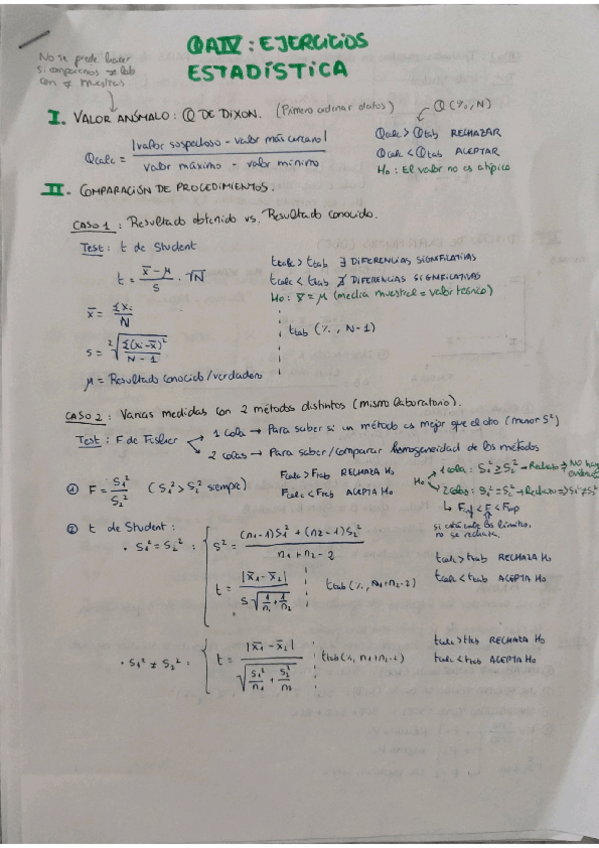 QAIV: EJERCICIOS
ESTADÍSTICA
No se puede hacer
si comparamos ≠ lab
con ≠ muestras
I. VALOR ANÓMALO: Q DE DIXON. (Primero ordenar datos)
Q(%, N)
Qcalc = |valor sospechoso - valor más cercano| / valor máximo - valor mínimo
Qcalc > Qtab RECHAZAR
Qcalc < Qtab ACEPTAR
Ho: El valor no es atípico
II. COMPARACIÓN DE PROCEDIMIENTOS.
CASO 1: Resultado obtenido vs. Resultado conocido.
Test: t de Student
t = x̄ - μ / s · √N
tcalc > ttab ∃ DIFERENCIAS SIGNIFICATIVAS
tcalc < ttab ∄ DIFERENCIAS SIGNIFICATIVAS
Ho: x̄ = μ (media muestral = valor teórico)
x̄ = Σxi / N
ttab (%, N-1)
s = ²√ Σ(xi - x̄)² / N - 1
μ = Resultado conocido/verdadero
CASO 2: Varias medidas con 2 métodos distintos (mismo laboratorio).
Test: F de Fisher
1 cola → Para saber si un método es mejor que el otro (menor S²)
2 colas → Para saber/comparar homogeneidad de los métodos
① F = S₁² / S₂² (S₁² > S₂² siempre)
Fcalc > Ftab RECHAZA Ho
Fcalc < Ftab ACEPTA Ho
Ho
1 cola: S₁² ≥ S₂² → Rechazo ⇒ NO hay
2 colas: S₁² = S₂² → Rechazo ⇒ S₁² ≠ S₂²
↳ Finf < F < Fsup
si está entre los límites,
no se rechaza.
② t de Student:
· S₁² = S₂² :
S² = (n₁-1)S₁² + (n₂-1)S₂² / n₁ + n₂ - 2
t = |x̄₁ - x̄₂| / S√(1/n₁ + 1/n₂)
ttab (%, n₁+n₂-2)
tcalc > ttab RECHAZA Ho
tcalc < ttab ACEPTA Ho
· S₁² ≠ S₂² :
t = |x̄₁ - x̄₂| / √(S₁²/n₁ + S₂²/n₂)
ttab (%, n₁+n₂-2)
tcalc > ttab RECHAZA Ho
tcalc < ttab ACEPTA Ho